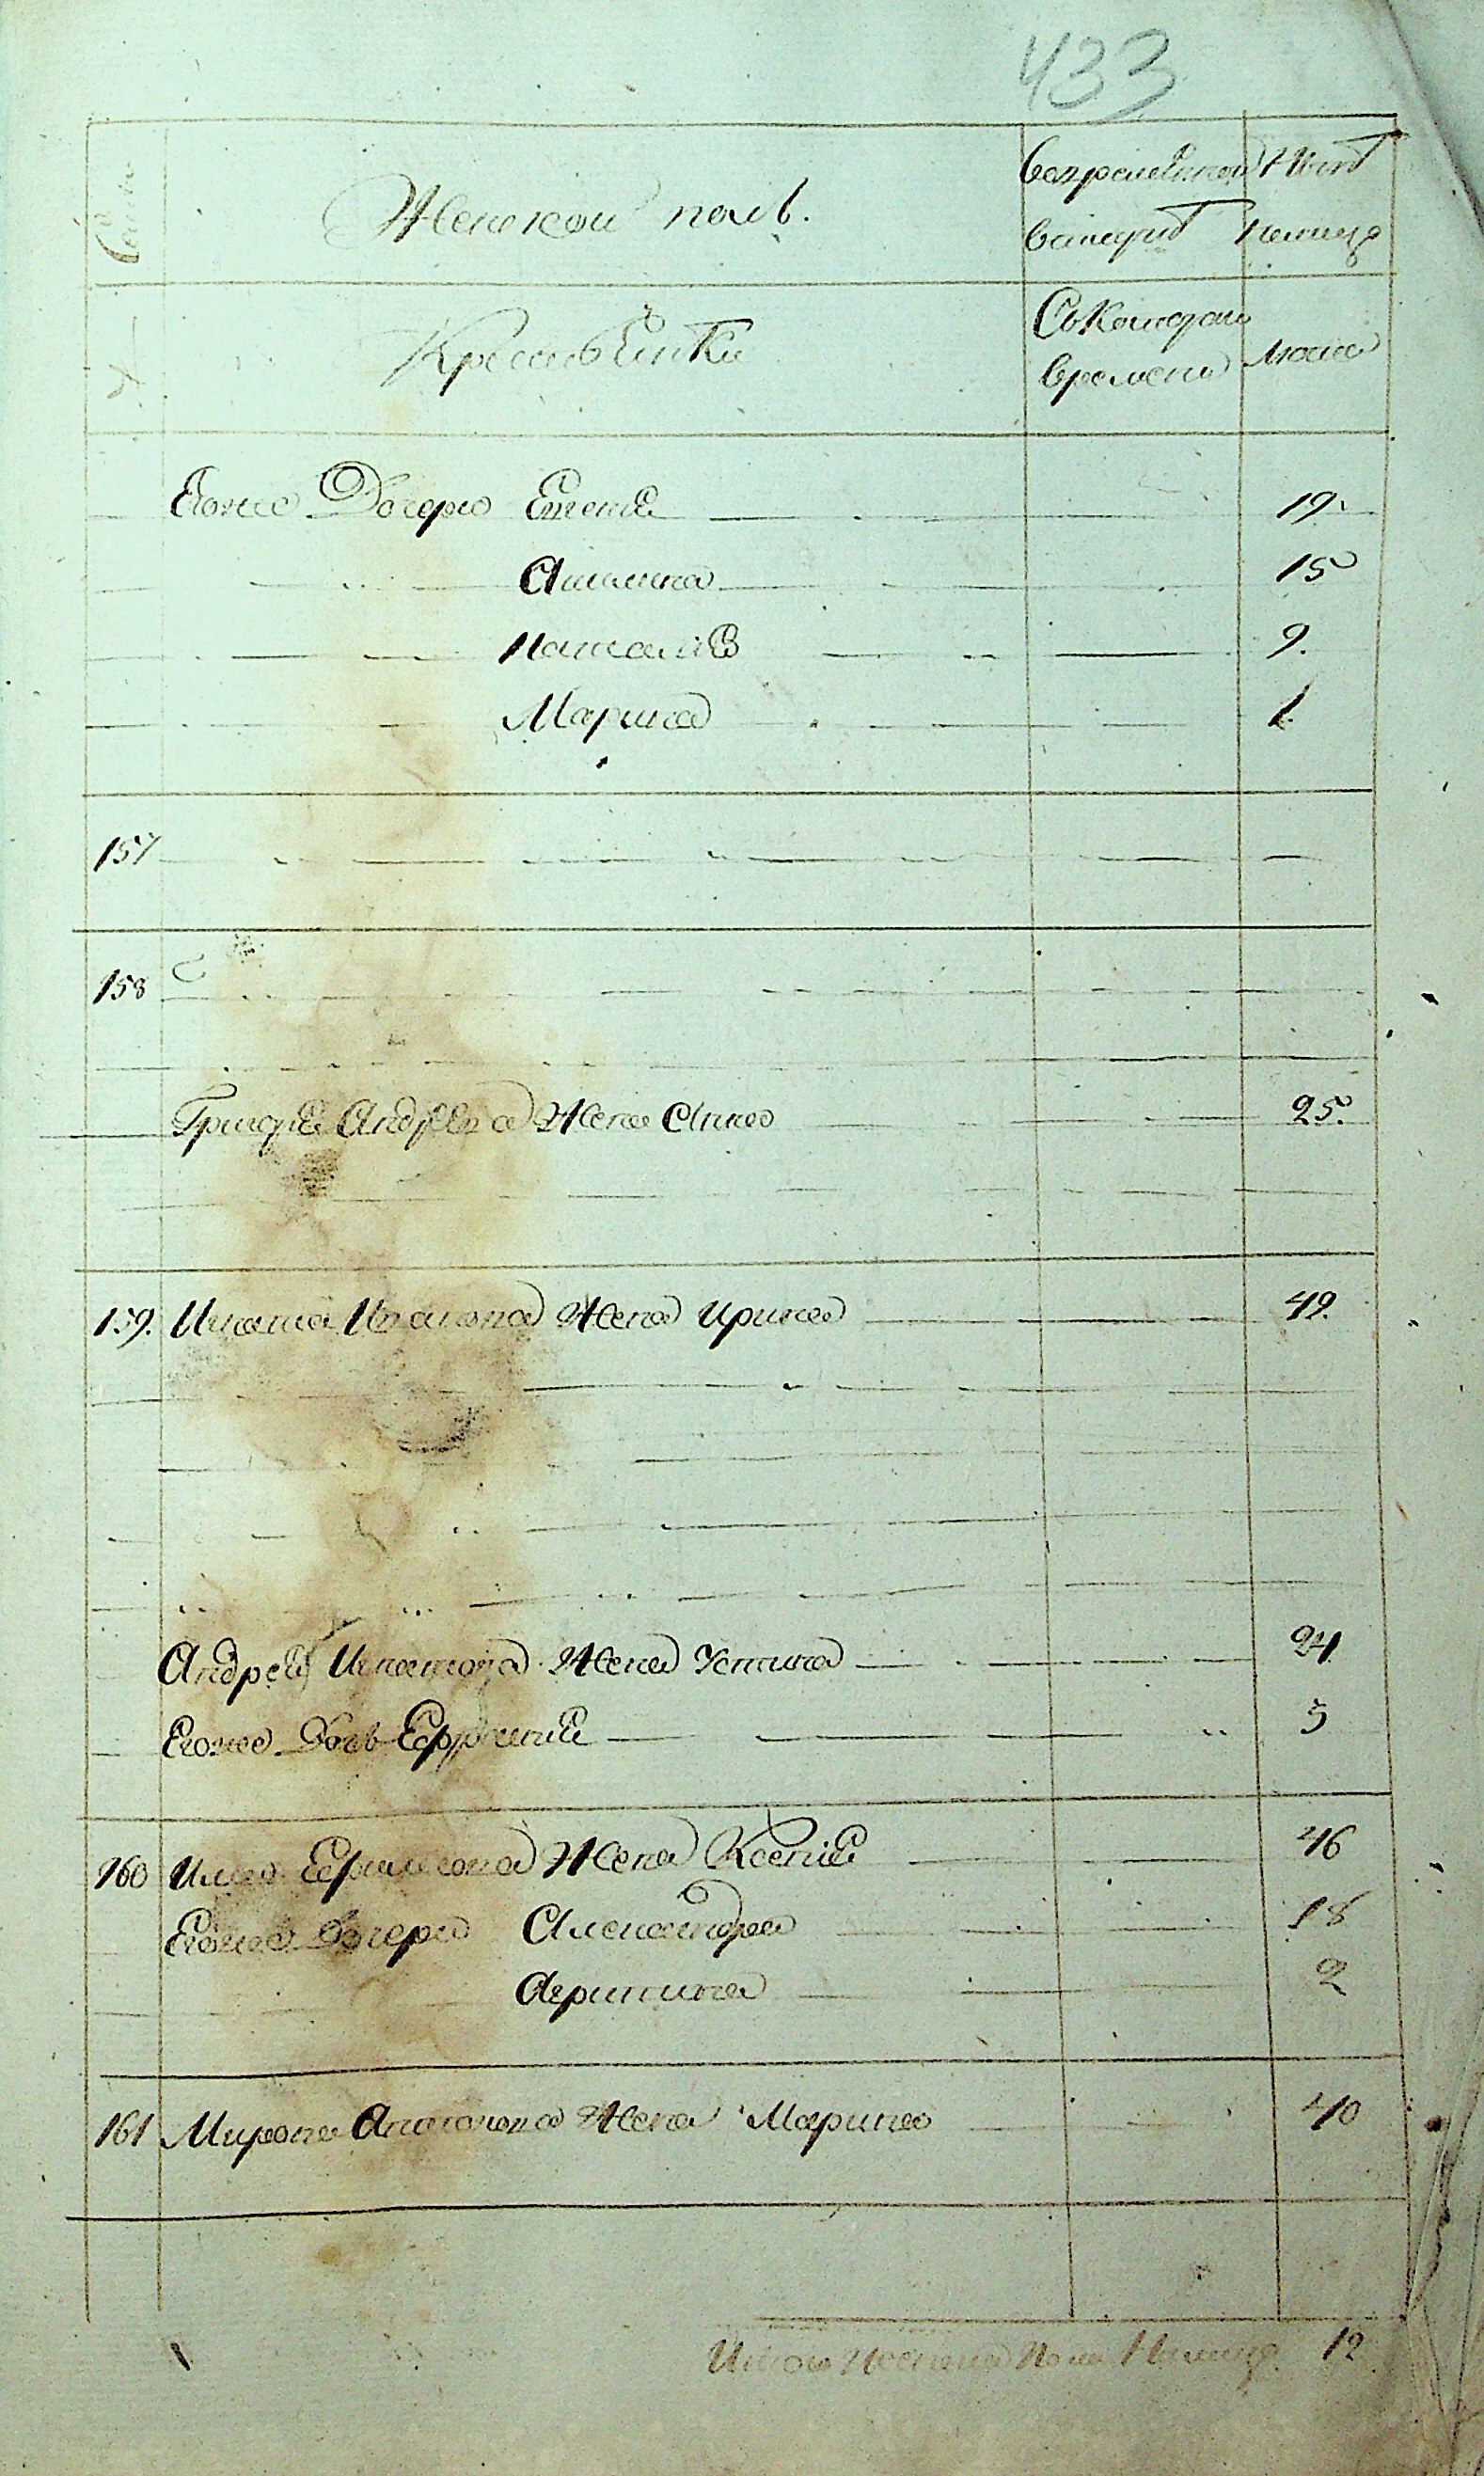 433
Семьи
Женской полъ.
Вовременной отлучкѣ
Ныне налицо
№
Крестьянки
Съкотораго времени
Лѣта
Егоже Дочери Евгения 19.
Акилина 15
Наталия 9.
Марина 1.
157
158
Григория Андреева Жена Анна 25.
159. Игната Иванова Жена Ирина 49.
Андрея Игнатова Жена Устина 24
Егоже Дочь Ефросиния 3
160 Ильи Ефимова Жена Ксения 46
Егоже Дочери Александра 18
Агрипина 2
161 Мирона Антонова Жена Марина 40
Итого женска Пола Налицо 12